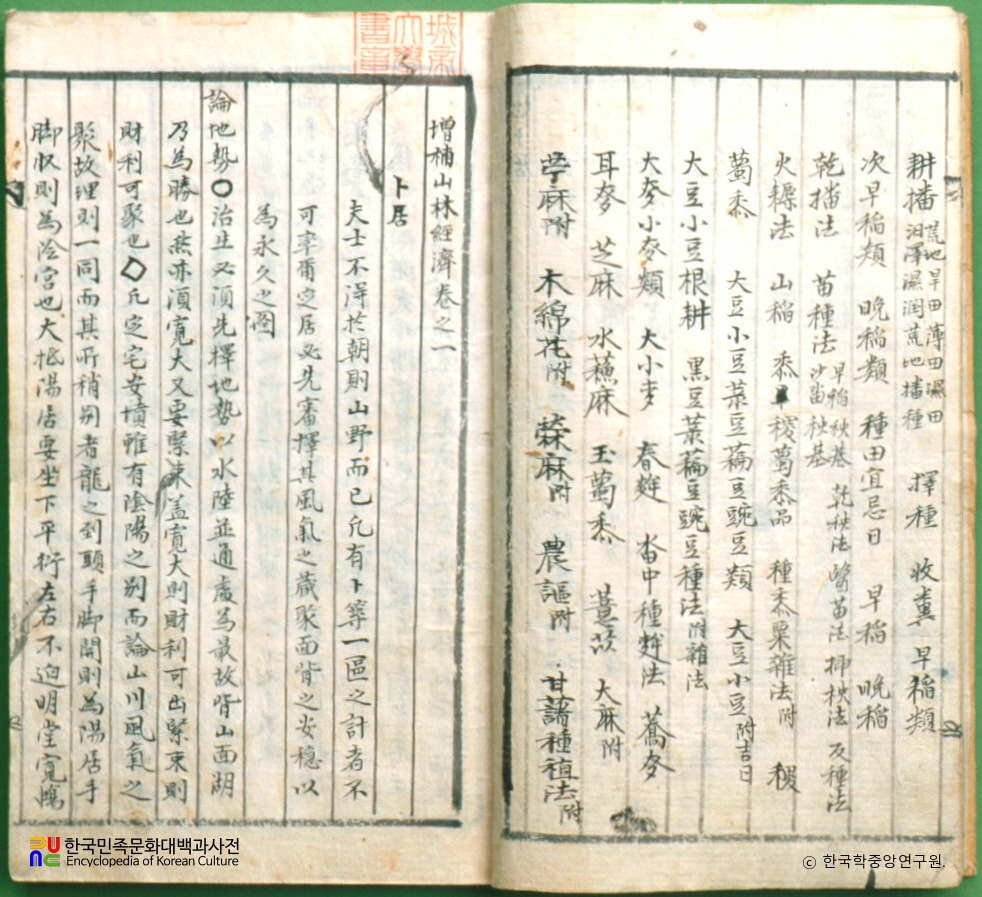 耕播 荒地旱田薄田濕田 汩澤濕潤荒地播種 擇種 收糞 早稲類
次早稲類 晩稲類 種田宜忌日 早稲 晩稲
乾播法 苗種法 早稲秧基 乾秧法 醫苗法 挿秧法 反種法 沙畓秧基
火耨法 山稲 黍 稷薥黍品 種黍粟雜法附 稷
薥黍 大豆小豆菉豆藊豆豌豆類 大豆小豆附吉日
大豆小豆根耕 黑豆菉藊豆豌豆種法附雜法
大麥小麥類 大小麥 春麰 畓中種麰法 蕎麥
耳麥 芝麻 水蘓麻 玉薥黍 薏苡 大麻附
苧麻附 木綿花附 檾麻附 農謳附 甘藷種植法附
增補山林經濟卷之一
卜居
夫士不淂於朝則山野而已凢有卜築一區之計者不
可率爾㝎居必先審擇其風氣之藏聚面背之安穏以
為永久之圖
論地勢○治生必湏先擇地勢以水陸並通處為最故背山面湖
乃為勝也然亦湏寛大又要緊束盖寛大則財利可出緊束則
財利可聚也◇凢㝎宅安墳雖有陰陽之别而論山川風氣之
聚故理則一同而其所稍别者龍之到頭手脚開則為陽居手
脚收則為冷宫也大抵陽居要坐下平衍左右不迫明堂寛
한국민족문화대백과사전
Encyclopedia of Korean Culture
© 한국학중앙연구원.